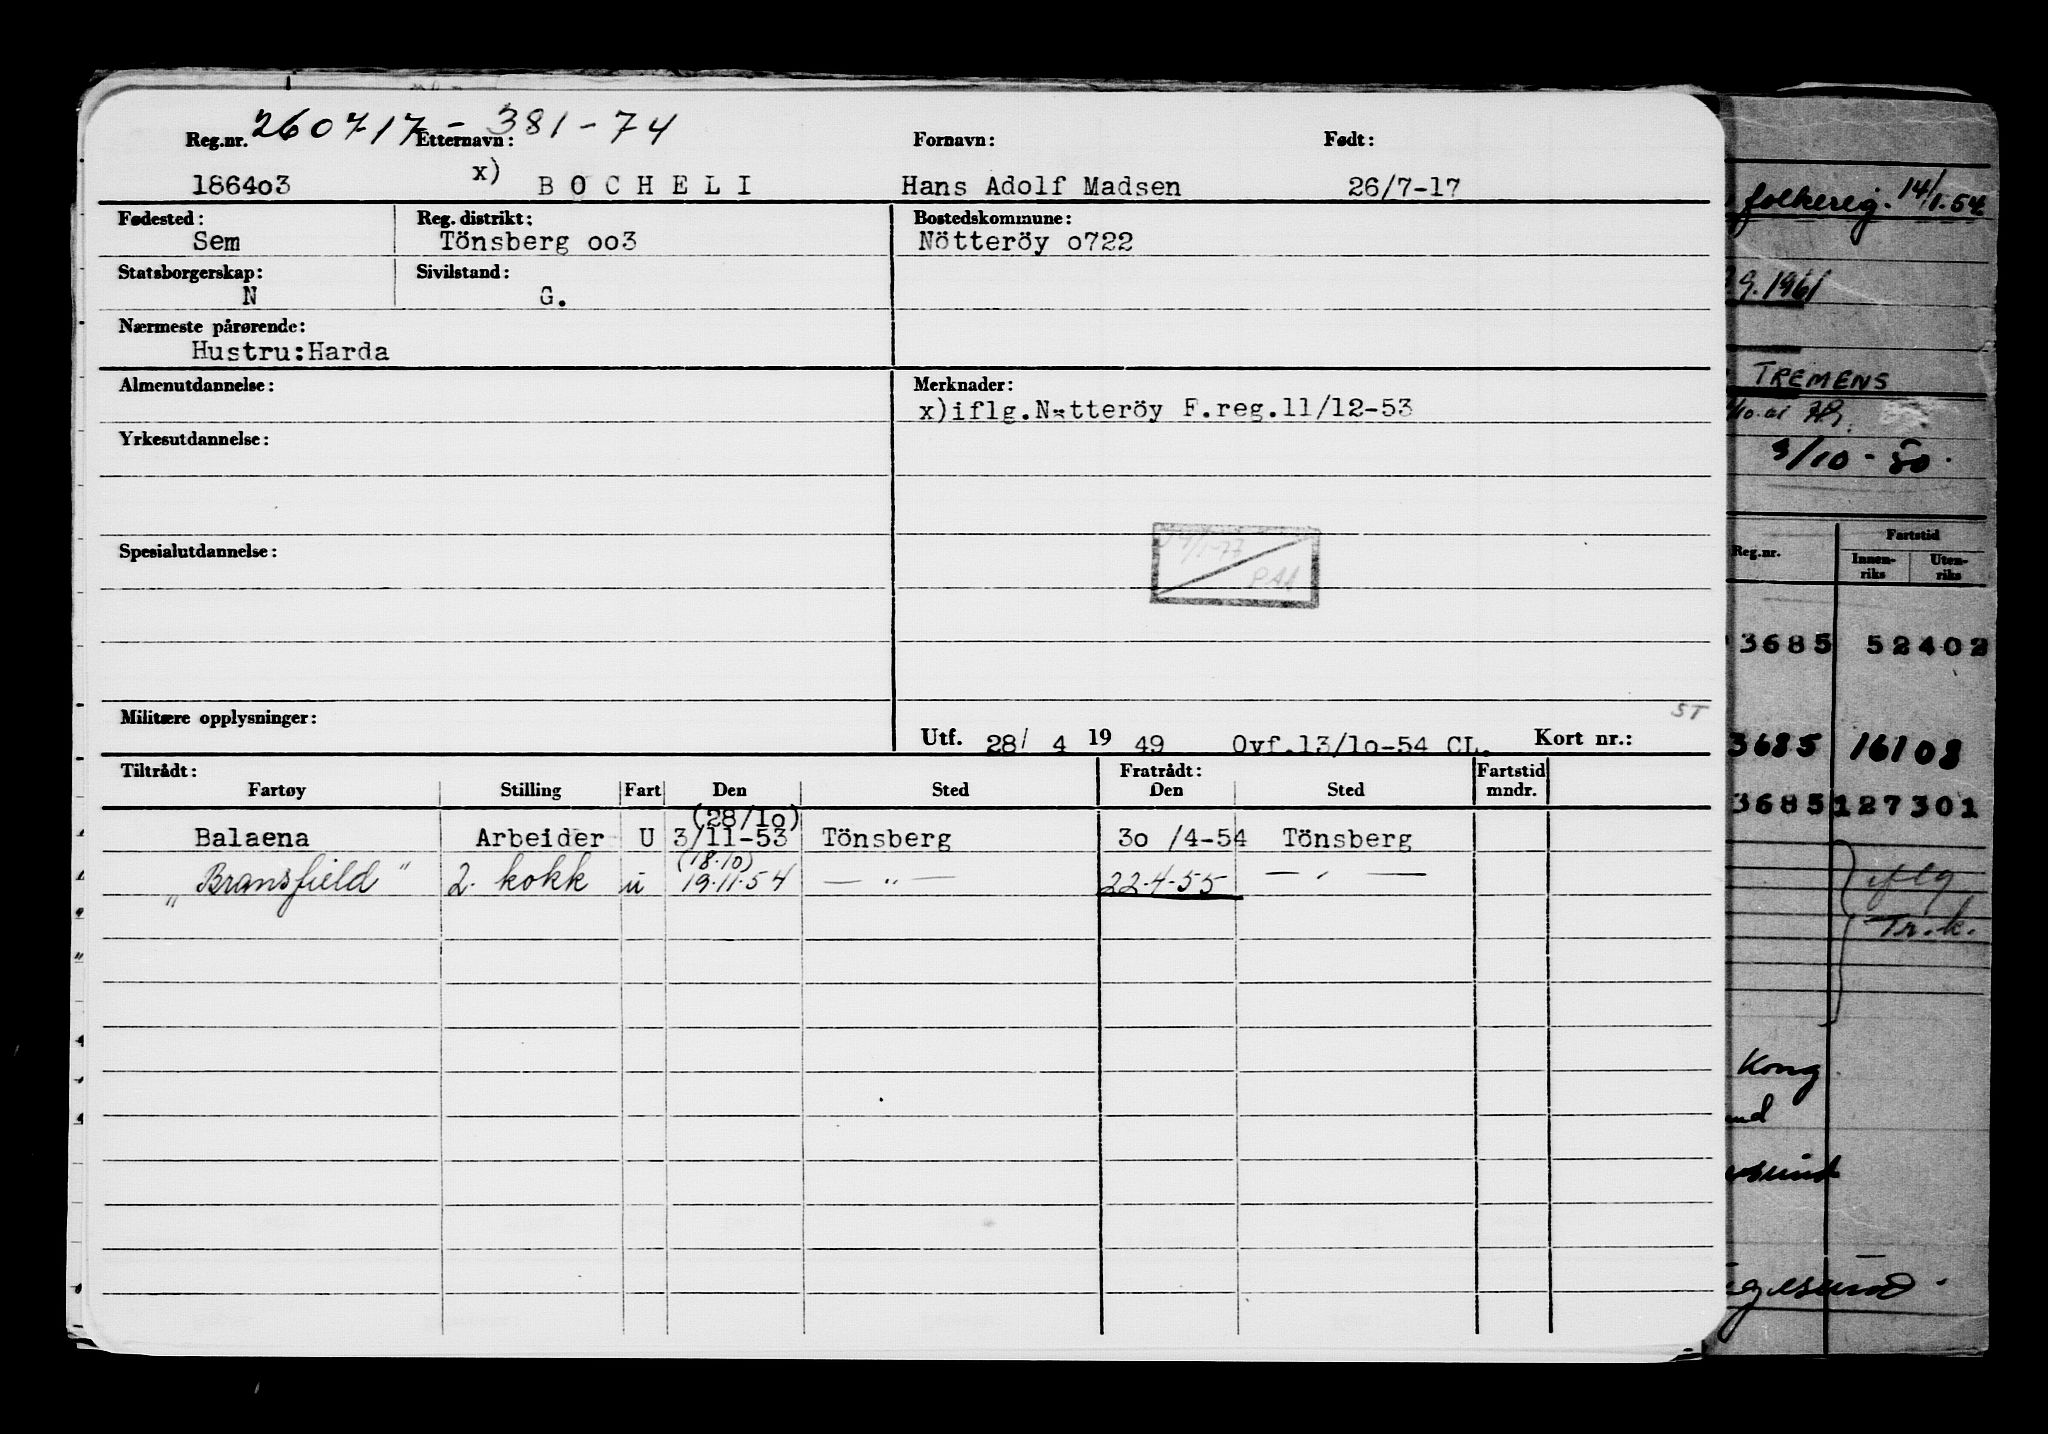 260717-381-74
Reg.nr. Etternavn: Fornavn: Født:
186403 x) BOCHELI Hans Adolf Madsen 26/7-17
Fødested: Reg. distrikt: Bostedskommune:
Sem Tönsberg oo3 Nötteröy o722
Statsborgerskap: Sivilstand:
N G.
Nærmeste pårørende:
Hustru:Harda
Almenutdannelse: Merknader:
x)iflg.Nøtteröy F.reg.11/12-53
Yrkesutdannelse:
Spesialutdannelse:
PAA
ST
Militære opplysninger:
Utf. 28/ 4 19 49 Ovf.13/10-54 CL. Kort nr.:
Tiltrådt: Fratrådt: Fartstid
Fartøy Stilling Fart Den Sted Den Sted mndr.
(28/10)
Balaena Arbeider U 3/11-53 Tönsberg 30 /4-54 Tönsberg
(18.10)
"Bransfield" 2. kokk u 19.11.54 — „ — 22-4-55 — „ —
folkereg. 14/1.54
9.1961
TREMENS
3/10-50.
Reg.nr. Fartstid
Innen-riks Uten-riks
3685 52402
3685 16108
3685 127301
iflg
Tr.k.
Kong